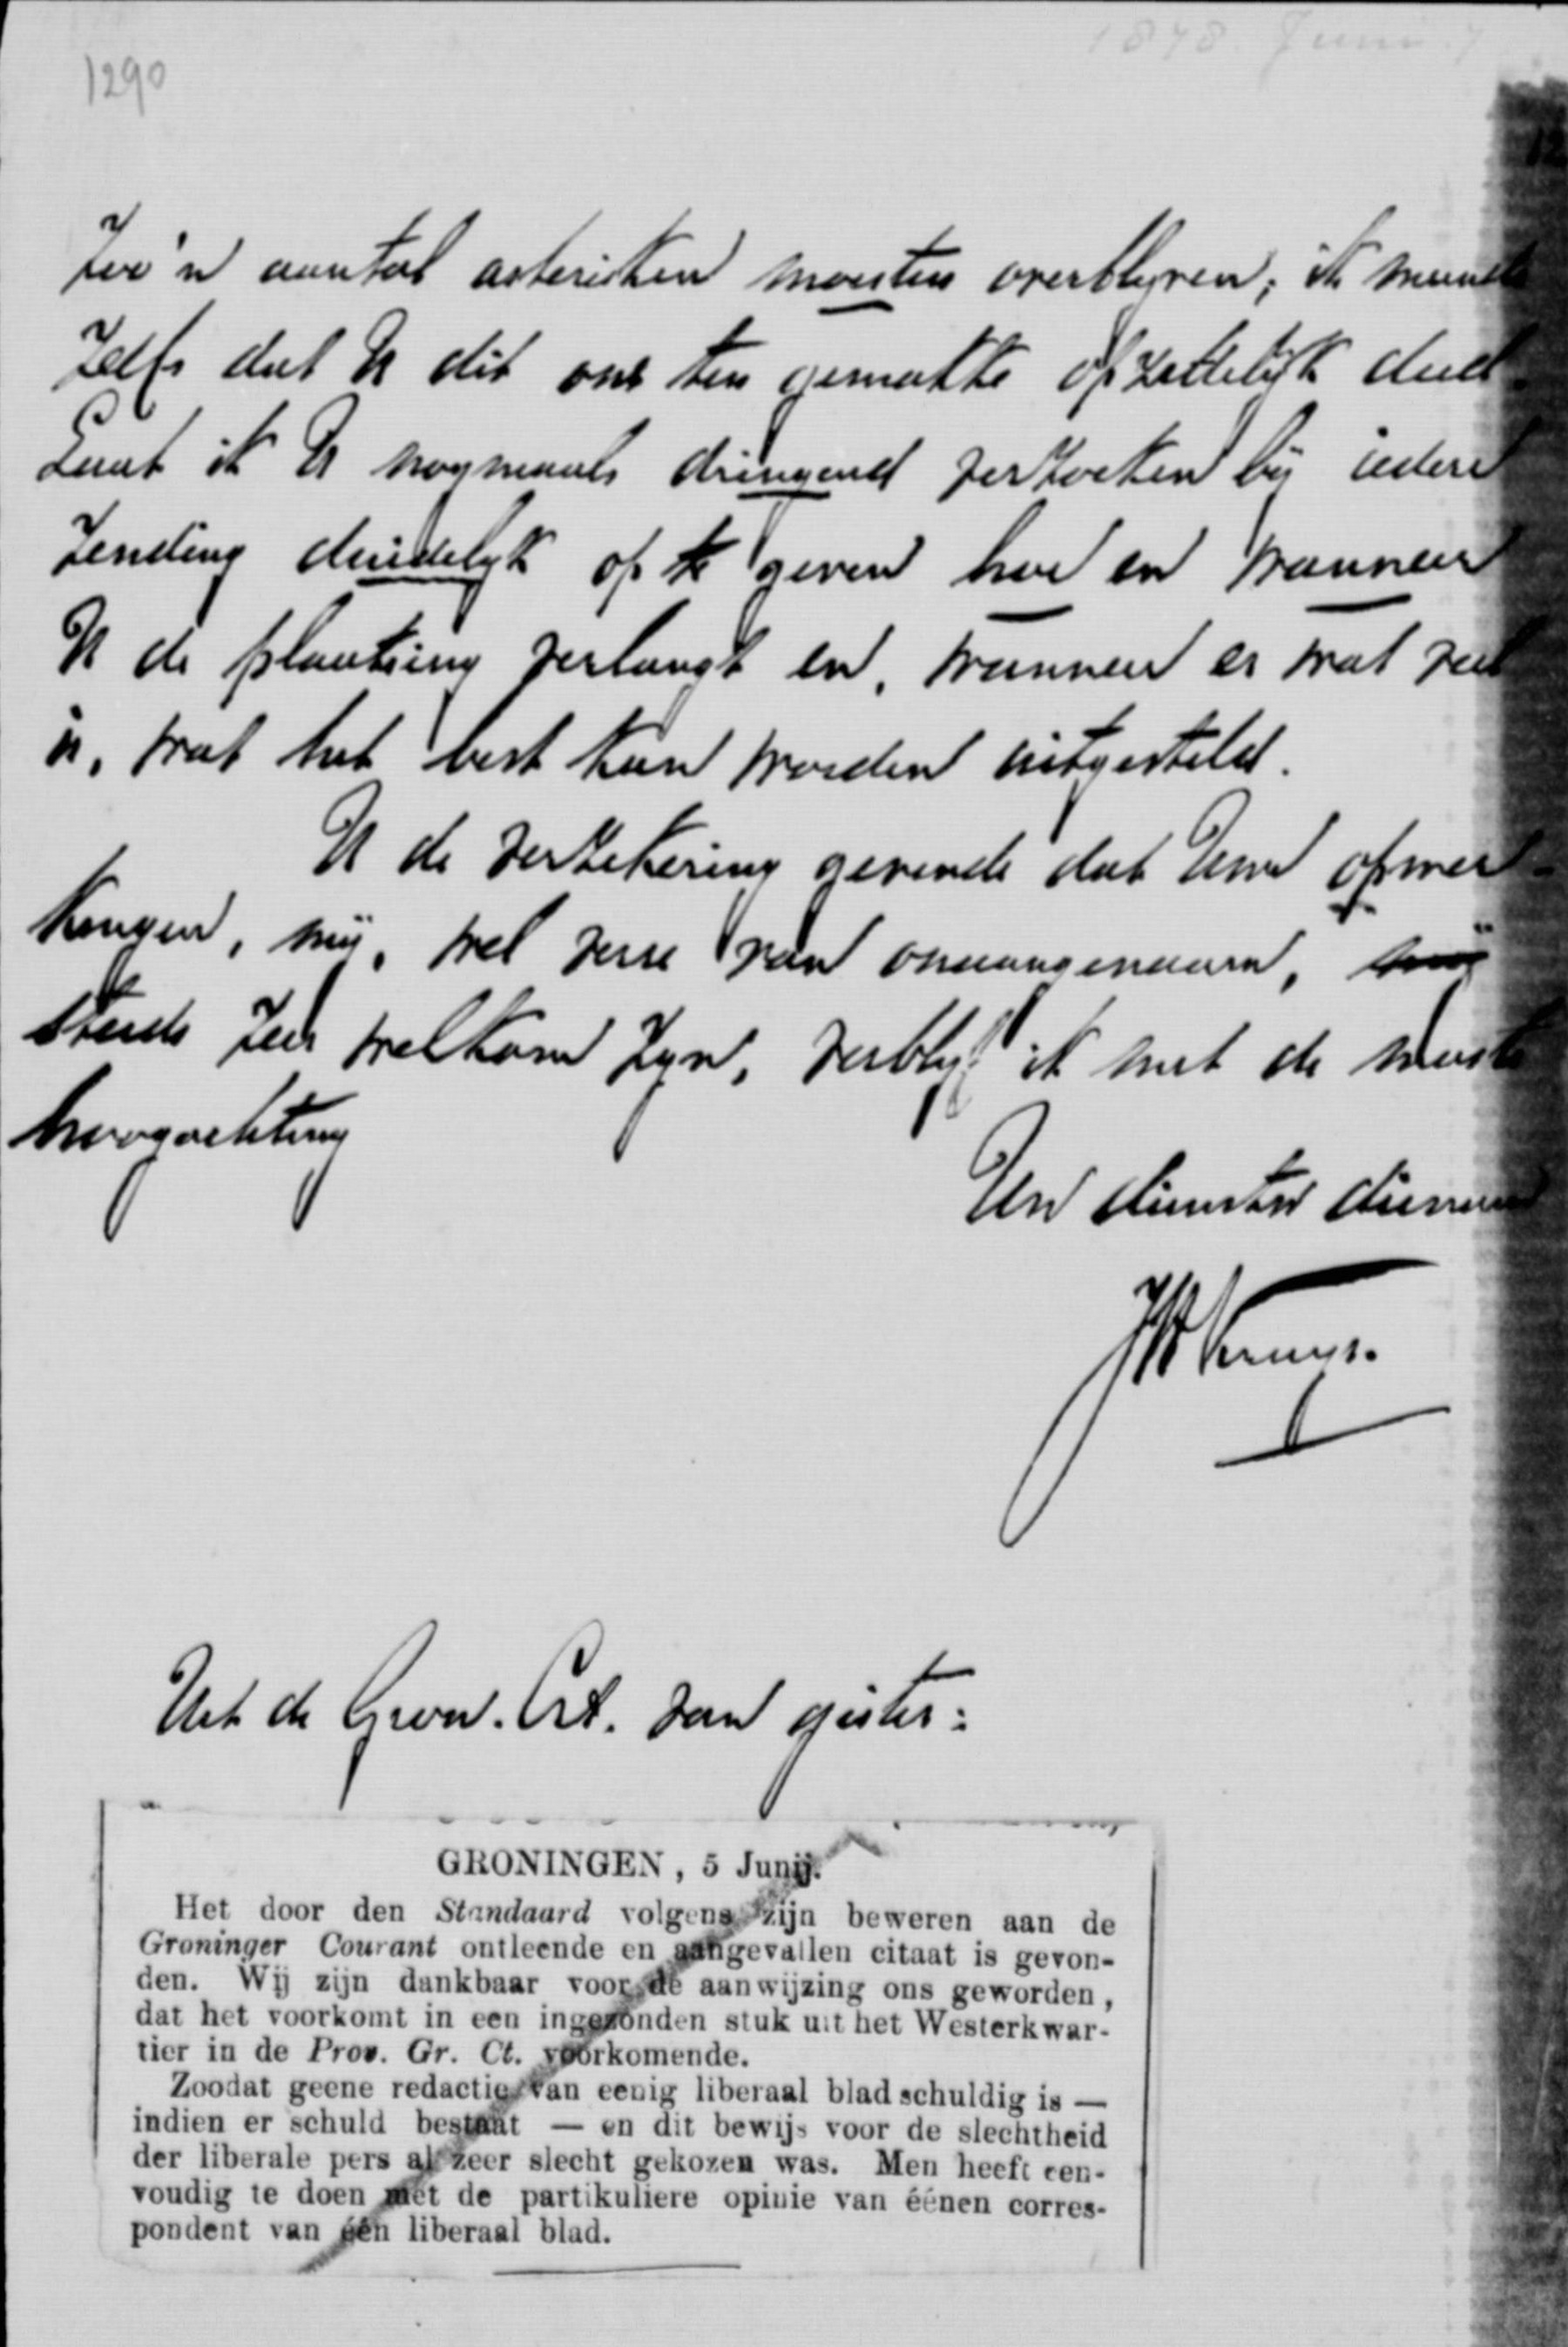 1290
1878. Juni 7
Zoo'n aantal asterisken moesten overblyven; ik meende
zelfs dat U dit ons ten gemakke opzettelyk deed.
Laat ik U nogmaals dringend verzoeken by iedere
zending duidelyk op te geven hoe en wanneer
U de plaatsing verlangt en, wanneer er wat veel
is, wat het best kan worden uitgesteld.
U de verzekering gevende dat Uwe opmer-
kingen, mij, wel verre van onaangenaam,
steeds zeer welkom zyn, verblyf ik met de meeste
hoogachting
Uw dienstw dienaar
Kruyt.
Uit de Gron. Crt. van gister:
GRONINGEN, 5 Junij.
Het door den Standaard volgens zijn beweren aan de
Groninger Courant ontleende en aangevallen citaat is gevon-
den. Wij zijn dankbaar voor de aanwijzing ons geworden,
dat het voorkomt in een ingezonden stuk uit het Westerkwar-
tier in de Prov. Gr. Ct. voorkomende.
Zoodat geene redactie van eenig liberaal blad schuldig is —
indien er schuld bestaat — en dit bewijs voor de slechtheid
der liberale pers al zeer slecht gekozen was. Men heeft een-
voudig te doen met de partikuliere opinie van éénen corres-
pondent van één liberaal blad.